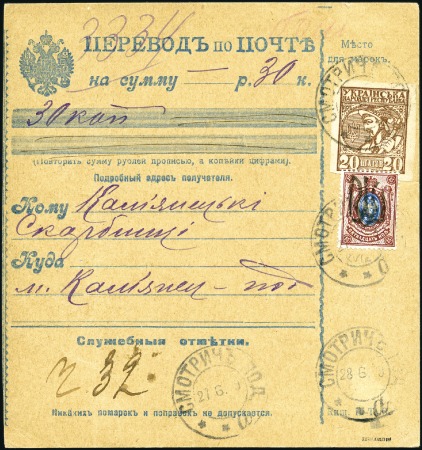 3334
ПЕРЕВОДЪ по ПОЧТѢ
Мѣсто
для марокъ.
на сумму — р. 30 к.
30 коп
(Повторить сумму рублей прописью, а копѣйки цифрами).
Подробный адресъ получателя.
Кому Камʼянецькі
Скарбниці
Куда
м. Камʼянец - под
УКРАЇНСЬКА
20 ШАГІВ 20
СМОТРИЧ
СМОТРИЧ
Служебныя отмѣтки.
ч. 32
СМОТРИЧЪ ПОД.
21 6
СМОТРИЧЪ
28 6
Никакихъ помарокъ и поправокъ не допускается.